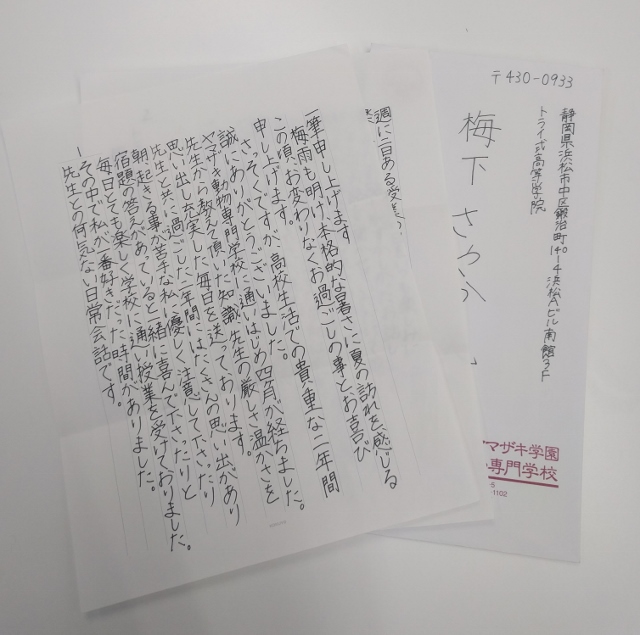 一筆申し上げます
梅雨も明け、本格的な暑さに夏の訪れを感じる
この頃、お変わりなくお過ごしの事とお喜び
申し上げます。
さっそくですが、高校生活での貴重な二年間
誠にありがとうございました。
ヤマザキ動物専門学校に通いはじめ四ヶ月が経ちました。
先生から教えて頂いた知識、先生の厳しさ温かさを
思い出し充実した毎日を送っております。
先生と共に過ごした二年間にはたくさんの思い出があり
朝起きる事が苦手な私に優しく注意して下さったり
宿題の答えがあっていると一緒に喜んで下さったりと
毎日とても楽しく学校に通い授業を受けておりました。
その中で私が一番好きだった時間がありました。
先生との何気ない日常会話です。
週に一日ある
〒430-0933
静岡県浜松市中区鍛冶町140-4 浜松Aビル南館3F
トライ式高等学院
梅下 さ
マザキ学園
専門学校
1102